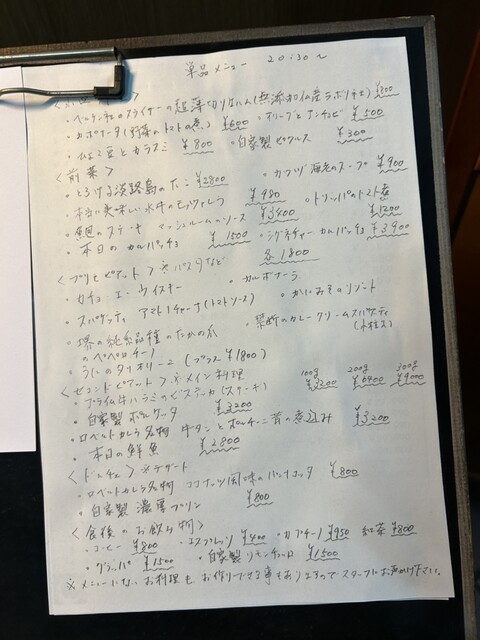 単品メニュー 20:30〜
・ベルケンチェのスライサーの超薄切り生ハム(無添加 産) ¥800
・カポナータ(野菜のトマト煮) ¥600 ・オリーブとアンチョビ ¥500
・ひよこ豆とカラスミ ¥800 ・自家製ピクルス ¥300
<前菜>
・とろける淡路島のたこ ¥2800 ・カラブリア海老のスープ ¥900
・本当に美味しい水牛のモッツァレラ ¥980 ・トリッパのトマト煮 ¥1200
・鮑のステーキ マッシュルームのソース ¥3400
・本日のカルパッチョ ¥1500 ・シグネチャーカルパッチョ ¥3900
<プリモピアット> ※パスタなど 各1800
・カチョ・エ・ウイスキー ・カルボナーラ
・スパゲッティ アマトリチャーナ(トマトソース) ・かにみそのリゾット
・堺の純系品種のたかの爪のペペロンチーノ ・禁断のカレークリームスパゲティ
・うにのタリオリーニ (プラス ¥1800)
<セコンドピアット> ※メイン料理 100g 200g 300g
・プライム牛ハラミのビステッカ(ステーキ) ¥3200 ¥6400 ¥9000
・自家製ポルケッタ ¥3200
・ロベルトカレラ名物 牛タンとポルチーニ茸の煮込み ¥3200
・本日の鮮魚 ¥2800
<ドルチェ> ※デザート
・ロベルトカレラ名物 ココナッツ風味のパンナコッタ ¥800
・自家製 濃厚プリン ¥800
<食後のお飲み物>
・コーヒー ¥800 ・エスプレッソ ¥400 ・カプチーノ ¥950 紅茶 ¥800
・グラッパ ¥1500 ・自家製リモンチェッロ ¥1500
※メニューにないお料理もお作りできる事もありますのでスタッフにお声がけ下さい。